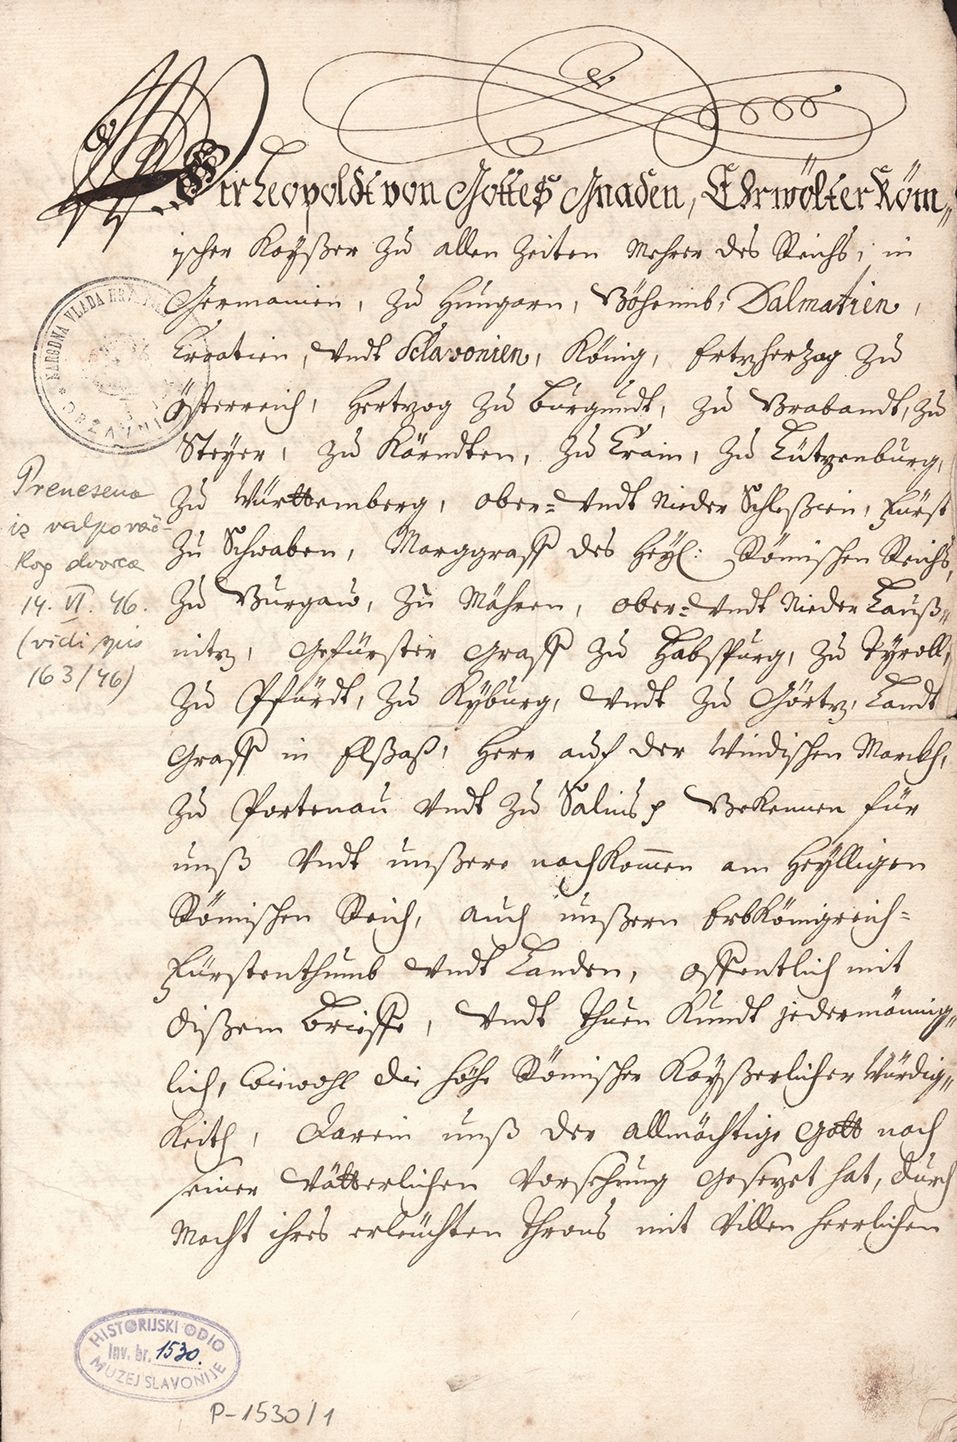 Wir Leopoldt von Gottes Gnaden, Ehrwölter Röm„
ischer Kayßer zu allen Zeiten Mehrer des Reichs, in
Germanien, zu Hungarn, Böheimb, Dalmatien,
Croatien, undt Sclavonien, König, Ertzhertzog zu
Österreich, Hertzog zu Burgundt, zu Brabandt, zu
Steyer, zu Kärndten, zu Crain, zu Lützenburg,
zu Württemberg, ober= undt Nieder Schleßien, Fürst
zu Schwaben, Marggraff des Heyl: Römischen Reichs,
zu Burgaw, zu Mähren, ober= undt Nieder Lauß„
nitz, Gefürster Graff zu Habspurg, zu Tyroll,
zu Pfürdt, zu Kyburg, undt zu Görtz, Landt
Graff in Elßaß, Herr auf der Windischen Marckh,
zu Portenau undt zu Salins p Bekennen für
unß undt unßere nachkommen am Heylligen
Römischen Reich, auch unßern ErbKönigreich=
Fürstenthumb undt Landen, offentlich mit
dißem brieffe, undt thuen Kundt jedermännig„
lich, wiewohl die höhe Römischer Kayßerlicher Würdig„
keith, darein unß der allmächtige Gott nach
seiner Vätterlichen Vorsehung gesezet hat, durch
Macht ihres erleuchten Throns mit Villen herrlichen
NARODNA VLADA
Prenesena
iz valpovač-
kog dvorca
14. VI. 46.
(vidi spis
163/46)
HISTORIJSKI ODIO
Inv. br. 1530.
MUZEJ SLAVONIJE
P-1530/1